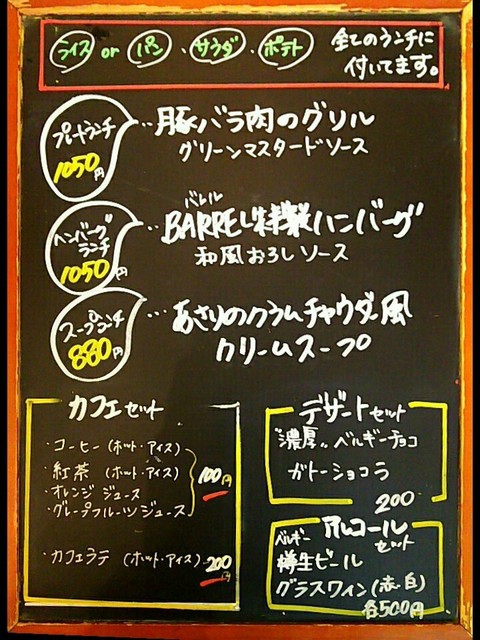 ライス or パン、サラダ、ポテト 全てのランチに
付いてます。
プレートランチ
1050円
…豚バラ肉のグリル
グリーンマスタードソース
ハンバーグ
ランチ
1050円
バレル
…BARREL特製ハンバーグ
和風おろしソース
スープランチ
880円
…あさりのクラムチャウダー風
クリームスープ
カフェセット
・コーヒー(ホット・アイス)
・紅茶(ホット・アイス)
・オレンジジュース
・グレープフルーツジュース
100円
・カフェラテ(ホット・アイス) 200円
デザートセット
"濃厚"ベルギーチョコ
ガトーショコラ
200
アルコール
セット
ベルギー
樽生ビール
グラスワイン(赤・白)
各500円